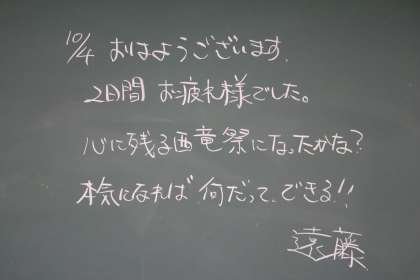 10/4 おはようございます.
2日間 お疲れ様でした。
心に残る西竜祭になったかな?
本気になれば 何だって できる!!
遠藤